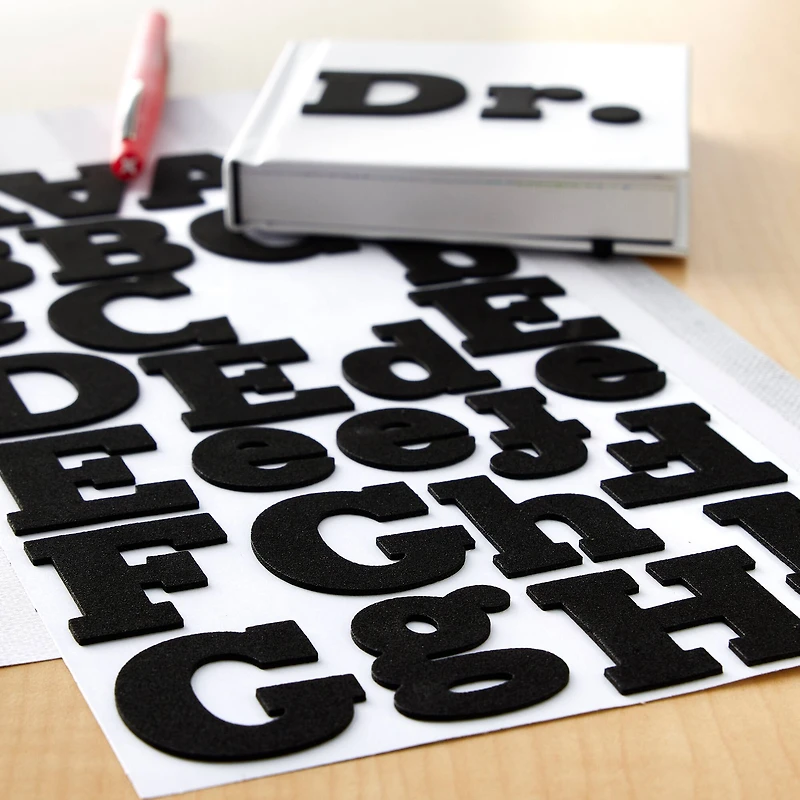 Dr.
A
B
C d E
D E e
E e e f
F G h F
G g H